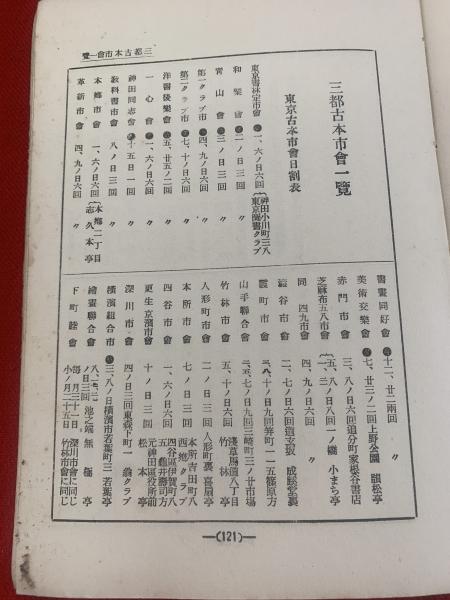 三都古本市會一覽
三都古本市會一覽
東京古本市會日割表
東京書林定市會 一、六ノ日六回 神田小川町三八 東京圖書クラブ
和樂會 二ノ日三回 〃
青山會 三ノ日三回 〃
第一クラブ市 四、九ノ日六回 〃
第二クラブ市 七、十ノ日六回 〃
洋書後樂會 五、廿五ノ二回 〃
一心會 一、六ノ日六回 〃
神田同志會 十五日一回 〃
敎科書市會 八ノ日三回 〃
本鄉市會 一、六ノ日六回 本鄉二丁目 志久本亭
革新市會 四、九ノ日六回 〃
書畫同好會 十二、廿二兩回 〃
美術交樂會 七、廿三ノ二回 上野公園 韻松亭
赤門市會 三、八ノ日六回 追分町家根谷書店
芝麻布五八市會 五、八ノ日八回 一ノ橋 小まち亭
同 四九市會 四、九ノ日六回 〃
澁谷市會 二、七ノ日六回 道玄坂
霞町市會 三、八、十ノ日九回 笄町一一五篠原方
山手聯合會 二、五、七ノ日九回 三崎町三ノ廿市場
竹林市會 五、十ノ日六回 淺草馬道八丁目 竹林亭
人形町市會 二ノ日三回 人形町裏 喜扇亭
本所市會 七ノ日三回 本所吉田町八 西鄉クラブ
四谷市會 一、六ノ日六回 四谷區伊賀町八五 龜井壽司方
更生京濱市會 十ノ日三回 元神田區役所前 松本亭
深川市會 四ノ日三回 東森下町一 翁クラブ
橫濱組合市 三、八ノ日 橫濱市若葉町三 若葉亭
繪畫聯合會 ノ日三回 池之端 無極亭
下町睦會 每月三十一日、深川市會に同じ 小ノ月二十五日 竹林市會に同じ
—(121)—